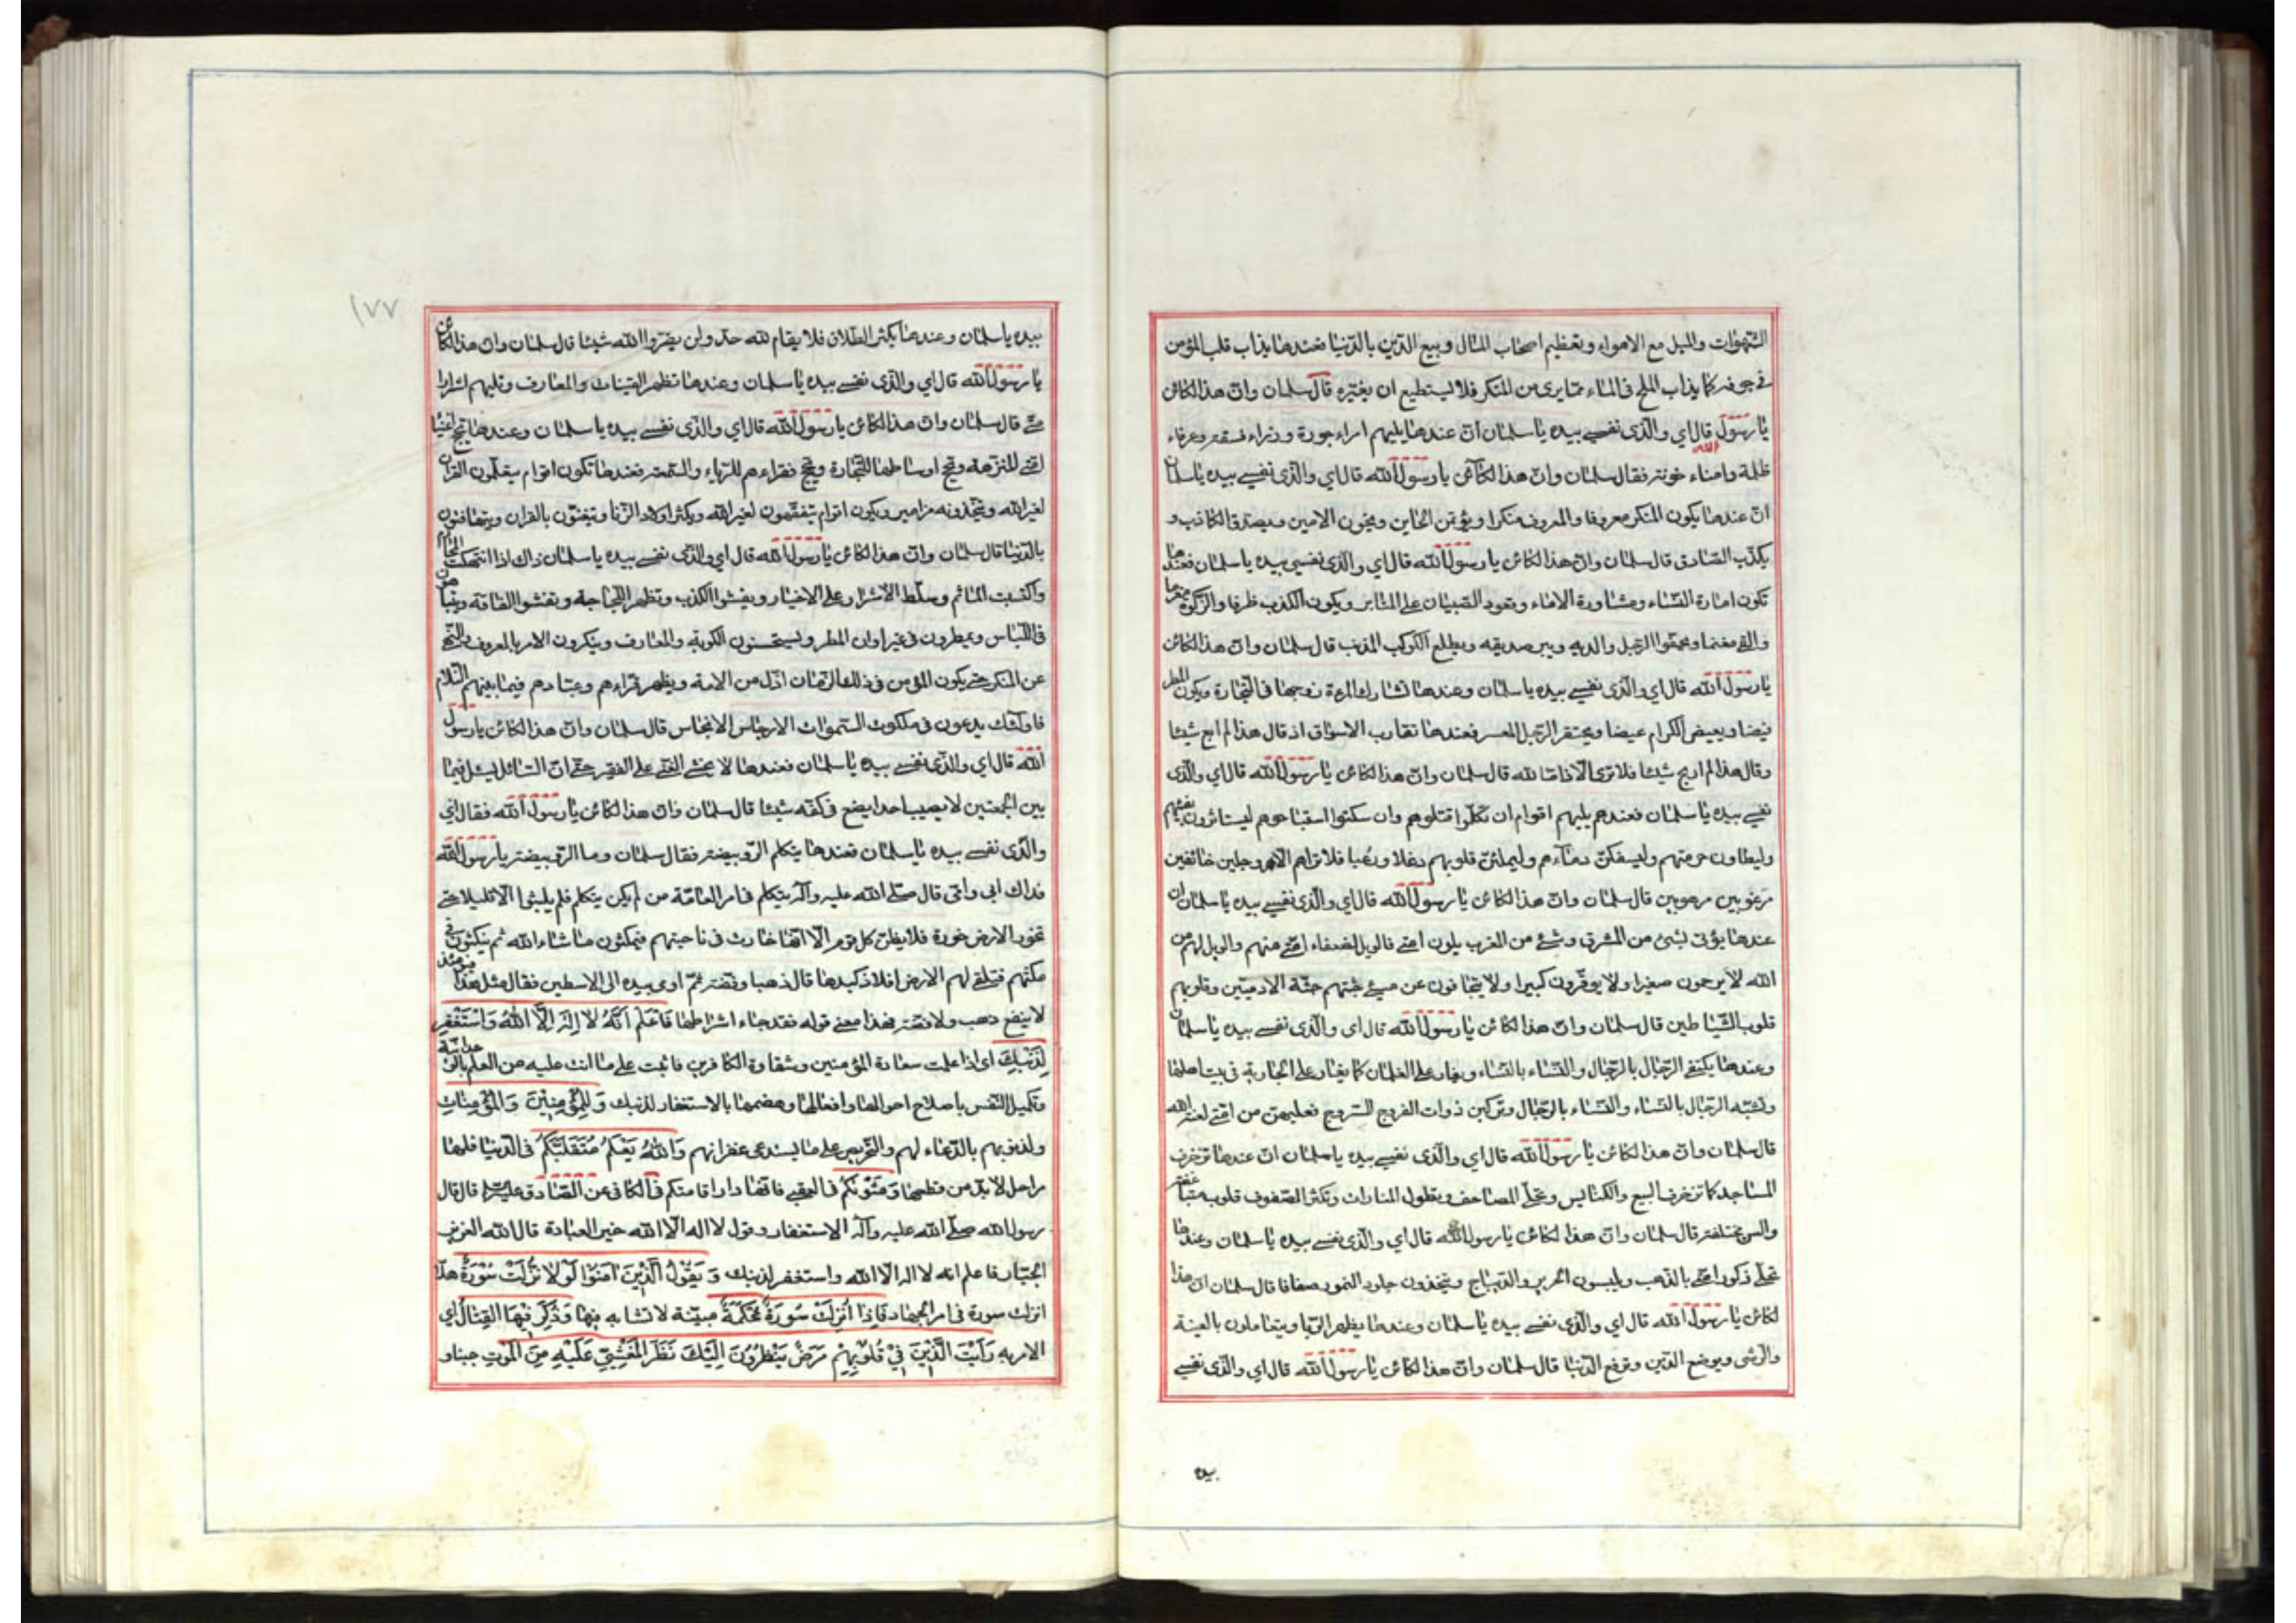 الشهوات والميل مع الاهواء وتعظيم اصحاب المال وبيع الدين بالدنيا فعندها يذاب قلب المؤمن
في جوفه كما يذاب الملح في الماء مما يرى من المنكر فلا يستطيع ان يغيره قال سلمان وان هذا لكائن
يا رسول الله قال اي والذي نفسي بيده يا سلمان ان عندها يليهم امراء جورة ووزراء فسقة وعرفاء
ظلمة وامناء خونة فقال سلمان وان هذا لكائن يا رسول الله قال اي والذي نفسي بيده يا سلمان
ان عندها يكون المنكر معروفا والمعروف منكرا ويؤتمن الخاين ويخون الامين ويصدق الكاذب و
يكذب الصادق قال سلمان وان هذا لكائن يا رسول الله قال اي والذي نفسي بيده يا سلمان فعندها
تكون امارة النساء ومشاورة الاماء وقعود الصبيان على المنابر ويكون الكذب ظرفا والزكوة مغرما
والفئ مغنما ويجفوا الرجل والديه ويبر صديقه ويطلع الكوكب المذنب قال سلمان وان هذا لكائن
يا رسول الله قال اي والذي نفسي بيده يا سلمان وعندها تشارك المرءة زوجها في التجارة ويكون المطر
قيضا ويغيض الكرام غيضا ويحتقر الرجل المعسر فعندها تقارب الاسواق اذ قال هذا لم ابع شيئا
وقال هذا لم اربح شيئا فلا ترى الا ذاما لله قال سلمان وان هذا لكائن يا رسول الله قال اي والذي
نفسي بيده يا سلمان فعندهم يليهم اقوام ان تكلموا قتلوهم وان سكتوا استباحوهم ليستاثرون بفيئهم
وليطاون حرمتهم وليسفكن دماءهم وليملئن قلوبهم دغلا ورعبا فلا تراهم الا وجلين خائفين
مرعوبين مرهوبين قال سلمان وان هذا لكائن يا رسول الله قال اي والذي نفسي بيده يا سلمان ان
عندها يؤتى بشئ من المشرق وشئ من المغرب يلون امتي فالويل لضعفاء امتي منهم والويل لهم من
الله لا يرحمون صغيرا ولا يوقرون كبيرا ولا يتجافون عن مسئ جثتهم جثة الادميين وقلوبهم
قلوب الشياطين قال سلمان وان هذا لكائن يا رسول الله قال اي والذي نفسي بيده يا سلمان
وعندها يكتفي الرجال بالرجال والنساء بالنساء ويغار على الغلمان كما يغار على الجارية في بيت اهلها
وتشبه الرجال بالنساء والنساء بالرجال وتركبن ذوات الفروج السروج فعليهن من امتي لعنة الله
قال سلمان وان هذا لكائن يا رسول الله قال اي والذي نفسي بيده يا سلمان ان عندها تزخرف
المساجد كما تزخرف البيع والكنايس وتحلى المصاحف وتطول المنارات وتكثر الصفوف قلوب متباغضة
والسن مختلفة قال سلمان وان هذا لكائن يا رسول الله قال اي والذي نفسي بيده يا سلمان وعندها
تحلى ذكور امتي بالذهب ويلبسون الحرير والديباج ويتخذون جلود النمور صفافا قال سلمان ان هذا
لكائن يا رسول الله قال اي والذي نفسي بيده يا سلمان وعندها يظهر الربا ويتعاملون بالعينة
والرشى ويوضع الدين وترفع الدنيا قال سلمان وان هذا لكائن يا رسول الله قال اي والذي نفسي
بيده
١٧٧
بيده يا سلمان وعندها يكثر الطلاق فلا يقام لله حد ولن يضروا الله شيئا قال سلمان وان هذا لكائن
يا رسول الله قال اي والذي نفسي بيده يا سلمان وعندها تظهر القينات والمعازف وتليهم اشرار
متي قال سلمان وان هذا لكائن يا رسول الله قال اي والذي نفسي بيده يا سلمان وعندها تحج اغنياء
امتي للنزهة وتحج اوساطها للتجارة وتحج فقراءهم للرياء والسمعة فعندها تكون اقوام يتعلمون القران
لغير الله ويتخذونه مزامير ويكون اقوام يتفقهون لغير الله ويكثر اولاد الزنا ويتغنون بالقران ويتهافتون
بالدنيا قال سلمان وان هذا لكائن يا رسول الله قال اي والذي نفسي بيده يا سلمان ذاك اذا انتهكت المحارم
واكتسبت المئاثم وسلط الاشرار على الاخيار ويفشوا الكذب وتظهر اللجاجة وتفشوا الفاقة ويتباهون
في اللباس ويمطرون في غير اوان المطر ويستحسنون الكوبة والمعازف وينكرون الامر بالمعروف والنهي
عن المنكر حتى يكون المؤمن في ذلك الزمان اذل من الامة ويظهر قراءهم وعبادهم فيما بينهم التلاوم
فاولئك يدعون في ملكوت السموات الارجاس الانجاس قال سلمان وان هذا لكائن يا رسول
الله قال اي والذي نفسي بيده يا سلمان فعندها لا يخشى الغني على الفقير حتى ان السائل ليسئل فيما
بين الجمعتين لا يصيب احدا يضع في كفه شيئا قال سلمان وان هذا لكائن يا رسول الله فقال اي
والذي نفسي بيده يا سلمان فعندها يتكلم الروبيضة فقال سلمان وما الروبيضة يا رسول الله
فداك ابي وامي قال صلى الله عليه وآله يتكلم في امر العامة من لم يكن يتكلم فلم يلبثوا الا قليلا حتى
تخور الارض خورة فلا يظن كل قوم الا انها خارت في ناحيتهم فيمكثون ما شاء الله ثم ينكثون في
مكثهم فتلقي لهم الارض افلاذ كبدها قال ذهبا وفضة ثم اومى بيده الى الاساطين فقال مثل هذا فيومئذ
لا ينفع ذهب ولا فضة فهذا معنى قوله فقد جاء اشراطها فَاعْلَمْ اَنَّهُ لا اِلهَ اِلاَّ اللهُ وَاسْتَغْفِرْ
لِذَنْبِكَ اي اذا علمت سعادة المؤمنين وشقاوة الكافرين فاثبت على ما انت عليه من العلم بالوحدانية
وتكميل النفس باصلاح احوالها وافعالها وهضمها بالاستغفار لذنبك وَلِلْمُؤْمِنِينَ وَالْمُؤْمِناتِ
ولذنوبهم بالدعاء لهم والتحريص على ما يستدعي غفرانهم وَاللهُ يَعْلَمُ مُتَقَلَّبَكُمْ في الدنيا فانها
مراحل لا بد من قطعها وَمَثْوٰيكُمْ في العقبى فانها دار اقامتكم في الكافي عن الصادق عليه السلام قال قال
رسول الله صلى الله عليه وآله الاستغفار وقول لا اله الا الله خير العبادة قال الله العزيز
الجبار فاعلم انه لا اله الا الله واستغفر لذنبك وَيَقُولُ الَّذِينَ آمَنُوا لَوْلا نُزِّلَتْ سُورَةٌ هلا
انزلت سورة في امر الجهاد فَاِذا اُنْزِلَتْ سُورَةٌ مُحْكَمَةٌ مبينة لا تشابه فيها وَذُكِرَ فِيهَا الْقِتالُ اي
الامر به رَاَيْتَ الَّذِينَ فِي قُلُوبِهِمْ مَرَضٌ يَنْظُرُونَ اِلَيْكَ نَظَرَ الْمَغْشِيِّ عَلَيْهِ مِنَ الْمَوْتِ جبنا و